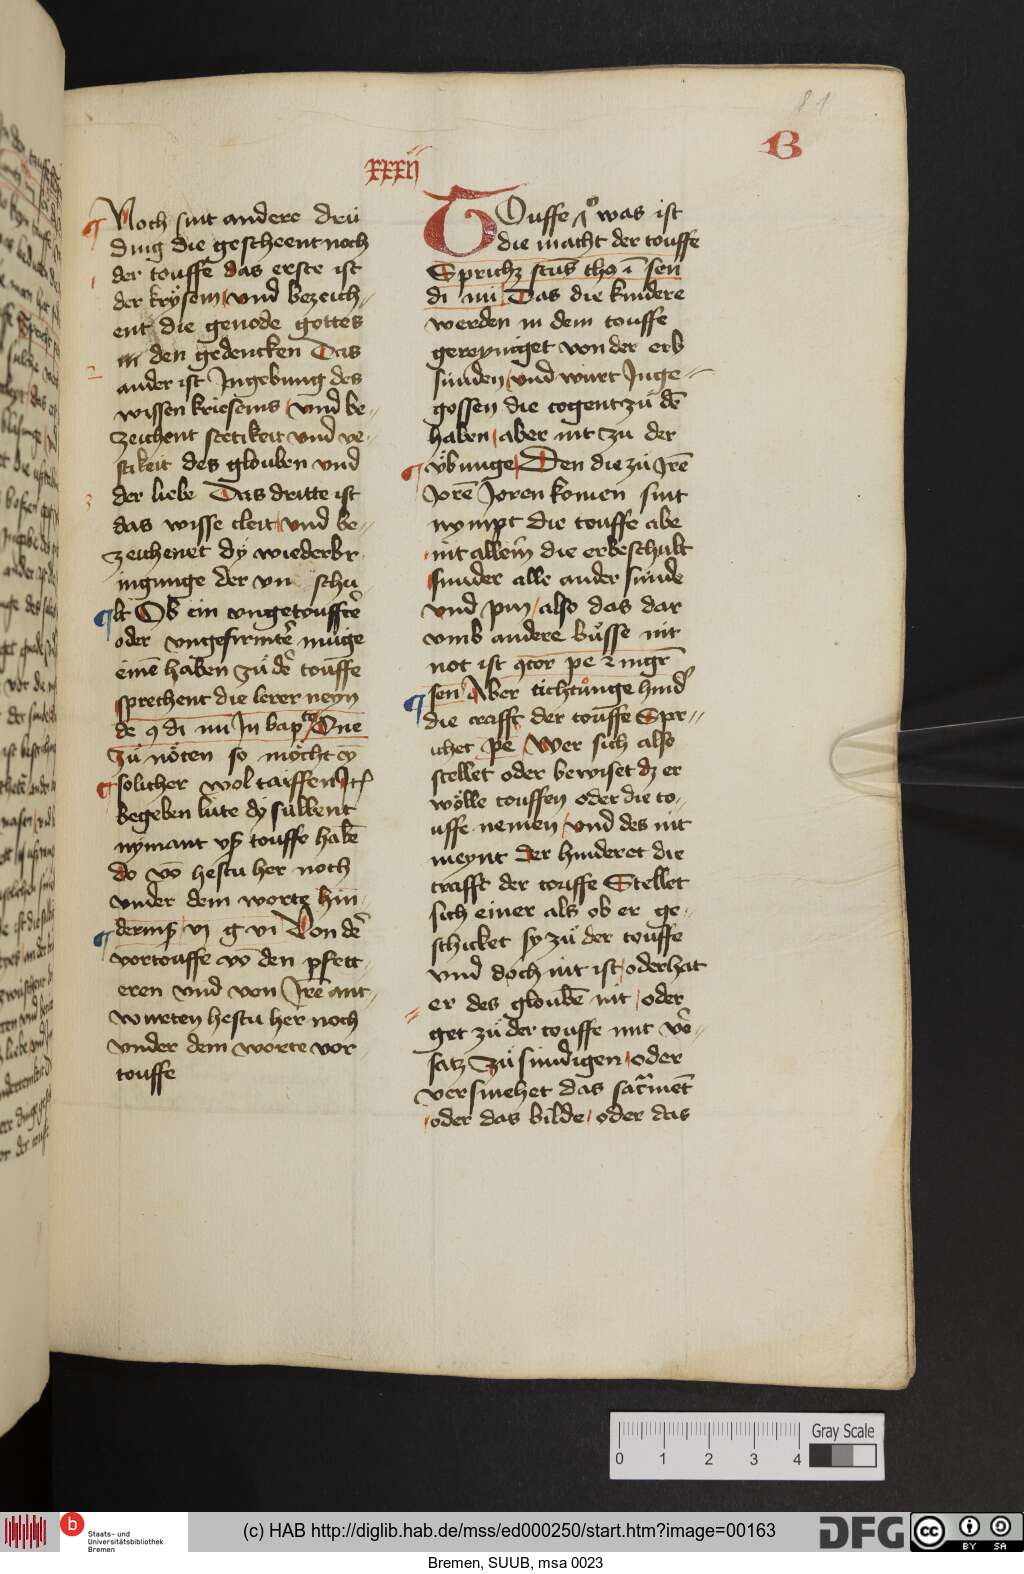 81
B
xxxii
Noch sint andere drü
ding die gescheent noch
der touffe das erste ist
der krÿsem vnd bezeich
ent die genode gottes
in den gedencken Das
ander ist Ingebung des
wissen kriesems vnd be
zeichent stetikeit vnd ve
stikeit des glouben vnd
der liebe Das dritte ist
das wisse cleit vnd be
zeichenet dÿ wiederbr
ingunge der vn schu
lt Ob ein vngetoufftē
oder vngefirmtē müge
einē haben zů dē touffe
sprechent die lerer neyn
de 9 di iiii In bap One
zů nöten so möcht eȳ
solicher wol taiffen Itē
begeben lute dÿ süllent
nymant vß touffe habē
do vō hestu her noch
vnder dem worte hin
derniß vi g vi Von dē
vortouffe vō den pfett
eren vnd von Irē ant
wurten hestu her noch
vnder dem worte vor
touffe
Touffe was ist
die macht der touffe
Sprichz scūs tho ī sen
di iiii Das die kindere
werden in dem touffe
gereyniget von der erb
sünden vnd wurt Inge
gossen die togent zů dē
haben aber nit zu der
vbunge Den die zů Irē
Jorē Joren komen sint
nympt die touffe abe
nit allein die erbeschult
sunder alle ander sünde
vnd pin also das dar
vmb andere bůsse nit
not ist
sen Aber tichtunge hind
die crafft der touffe Spr
ichet pe Wer sich also
stellet oder bewiset dz er
wölle touffen oder die to
uffe nemen vnd des nit
meynt der hinderet die
crafft der touffe Stellet
sich einer als ob er ge
schicket sy zů der touffe
vnd doch nit ist oder hat
er des gloubē nit oder
get zů der touffe mit vō
satz zů sündigen oder
versmehet das sacmēt
oder das bilde oder das
Gray Scale
0 1 2 3 4
b
Staats- und
Universitätsbibliothek
Bremen
(c) HAB http://diglib.hab.de/mss/ed000250/start.htm?image=00163
DFG
cc BY SA
Bremen, SUUB, msa 0023